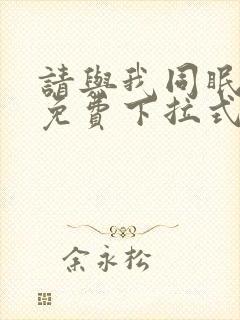 請與我同眠
免費下拉式
余永松